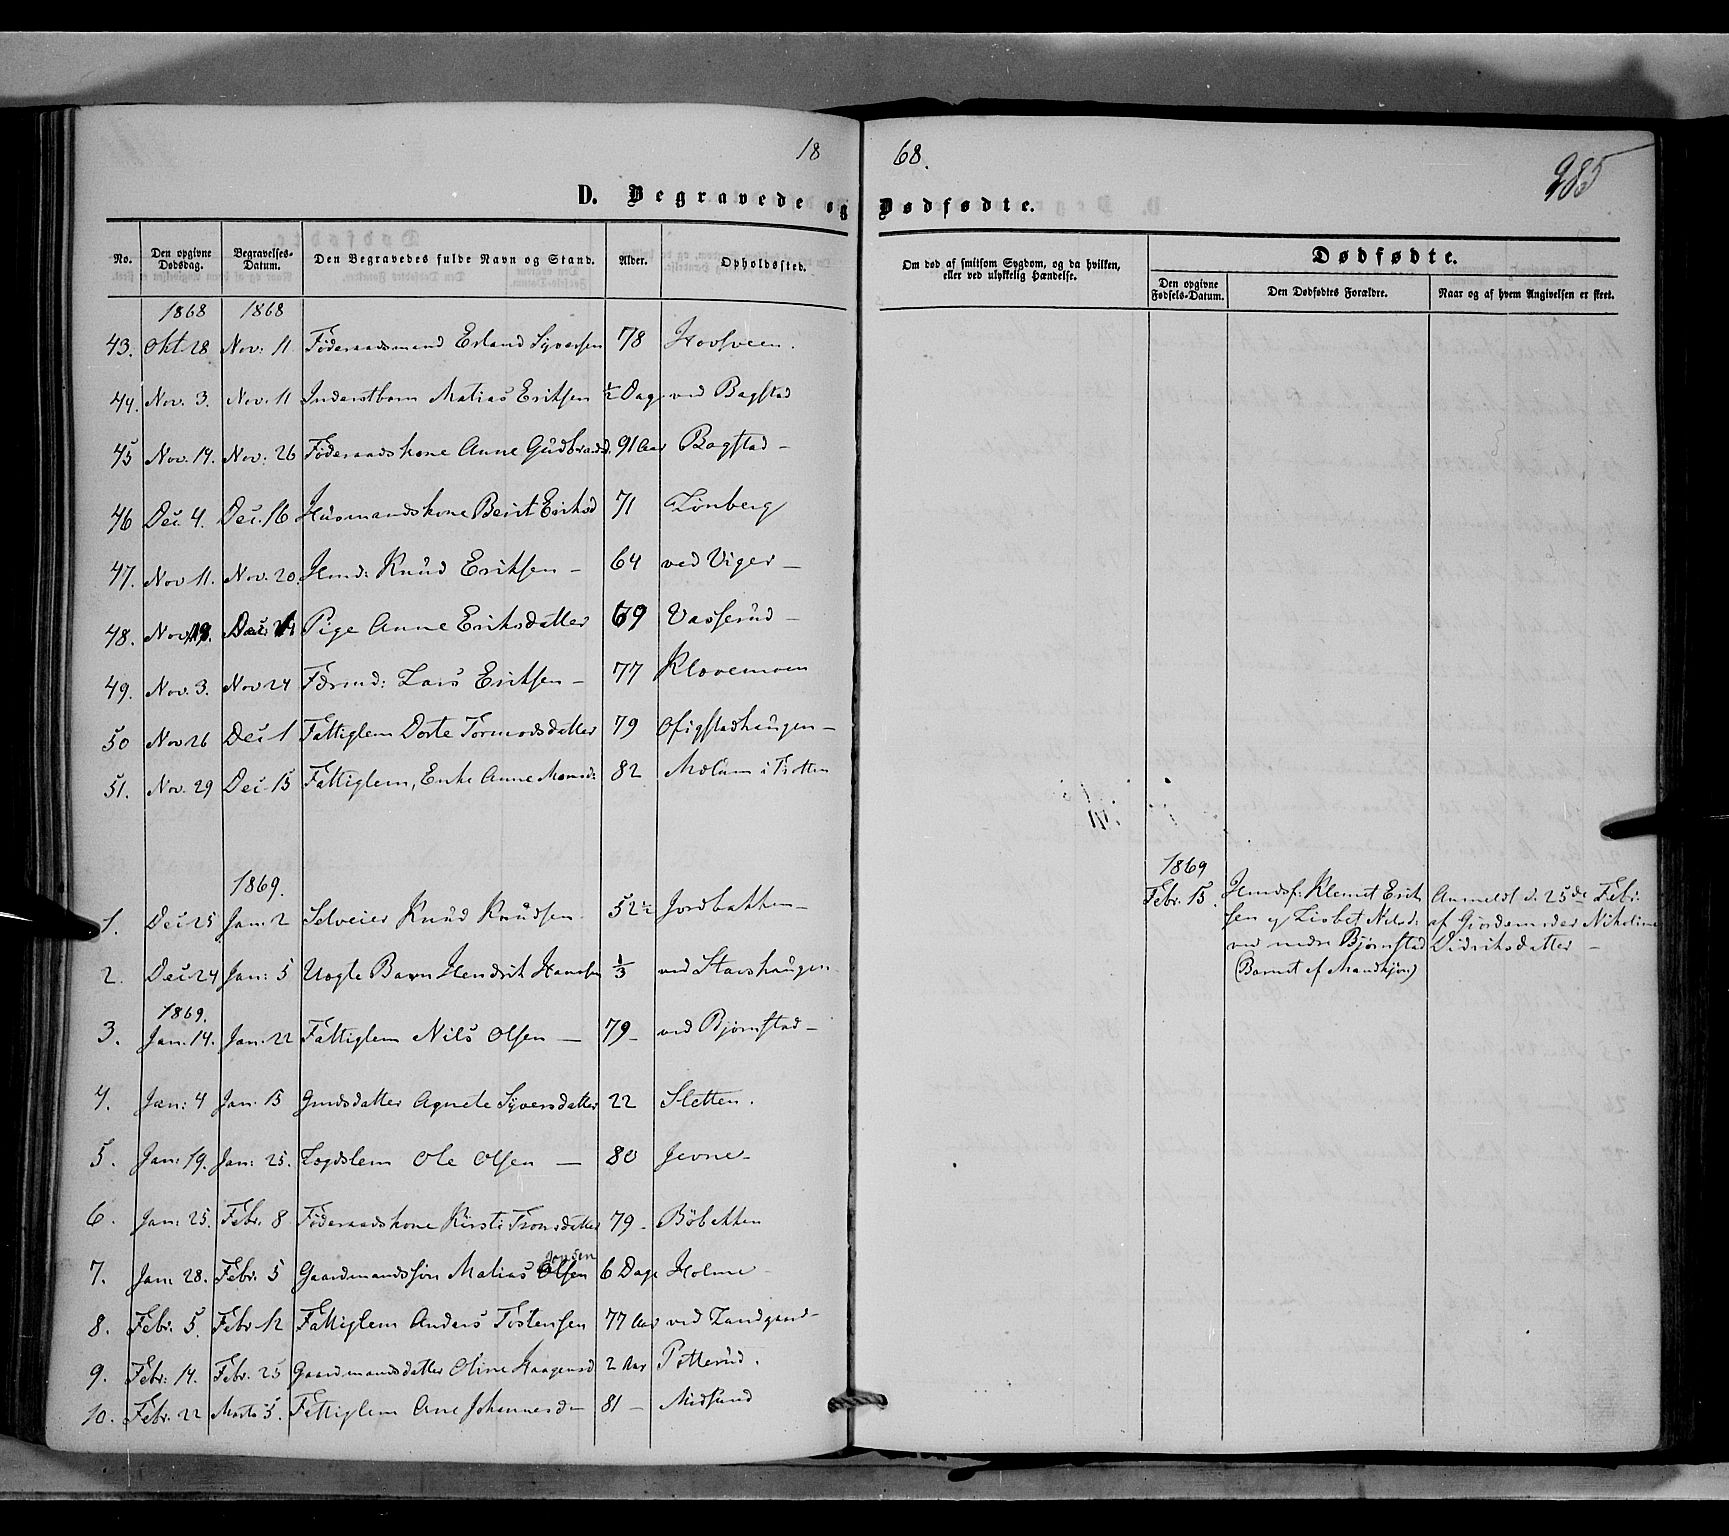 18 68.
285
D. Begravede og Dødfødte.
No. Den opgivne Dødsdag. Begravelses-Datum. Den Begravedes fulde Navn og Stand. Alder. Opholdssted. Om død af smitsom Sygdom, og da hvilken, eller ved ulykkelig Hændelse. Dødfødte.
Den opgivne Fødsels-Datum. Den Dødfødtes Forældre. Naar og af hvem Angivelsen er skeet.
1868 1868
43. Okt. 28 Nov: 11 Föderaadsmand Erland Syversen 78 Hovsveen.
44. Nov. 3. Nov. 11 Inderstbarn Matias Eriksen ½ Dag ved Bagstad
45 Nov. 14. Nov: 26 Föderaadskone Anne Gudbrandsd. 91 Aar Bagstad –
46 Dec. 4. Dec. 16 Husmandskone Berit Eriksd 71 Lönberg
47. Nov 11. Nov. 20. Hmd: Knud Eriksen – 64 ved Viger –
48. Nov. 19. Dec. Pige Anne Eriksdatter 69 Vasserud –
49. Nov. 3. Nov 24 Lars Eriksen – 77 Klovemoen
50 Nov 26 Dec 1 Fattiglem Dorte Tormodsdatter 79 Ofigstadhaugen –
51. Nov. 29 Dec 15 Fattiglem, Enke Anne Monsd: 82 Mælum i Tretten
1869.
1. Dec 25 Jan: 2 Selveier Knud Knudsen 52½ Jordbakken –
2. Dec 24 Jan: 5 Uægte Barn Hendrik Hansen ⅓ ved Stavshaugen
1869.
3. Jan. 14. Jan. 22 Fattiglem Nils Olsen — 79 – ved Bjørnstad –
4. Jan: 4 Jan: 15 Gmdsdatter Agnete Syversdatter 22 Sletten.
5. Jan: 19. Jan: 25. Lægdslem Ole Olsen — 80 Jevne –
6. Jan: 25. Febr. 8 Föderaadskone Kirsti Tronsdatter 79 – Böbakken
7. Jan: 28. Febr. 5 Gaardmandssön Matias Olsen Jansen 6 Dage Holme
8. Febr. 5. Febr 12 Fattiglem Anders Tostensen 77 Aar ved Landgaard –
9. Febr: 14. Febr. 25 Gaardmandsdatter Oline Haagensd 2 Aar Potterud.
10. Febr. 22 Marts 5. Fattiglem Ane Johannesd – 81 – Midsund
1869
Febr. 15. Hmdsf: Klemet Erik- Anmeldt d. 25de Febr.
sen og Lisbet Nilsd: af Gjordemoder Nikoline
ved nedre Bjørnstad Didriksdatter –
(Barnet af Mandkjøn)